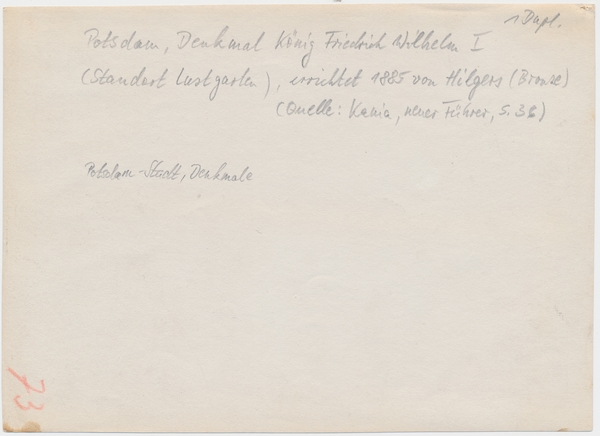 1 Dupl.
Potsdam, Denkmal König Friedrich Wilhelm I
(Standort Lustgarten), errichtet 1885 von Hilgers (Bronze)
(Quelle: Kania, neuer Führer, S. 38)
Potsdam-Stadt, Denkmale
73